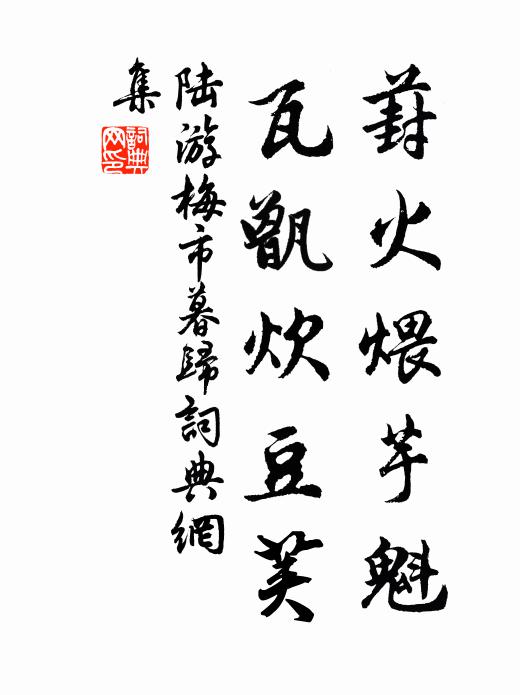 葑火煨芋魁
瓦甑炊豆荚
陆游梅市暮歸詞典網
集
詞典
网印